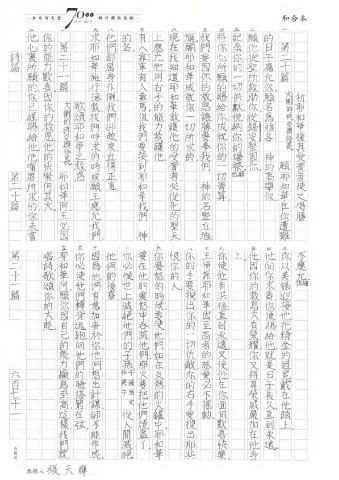 和合本
7000
第二十篇
祈耶和華使其受膏者使之得勝
大衛的詩交與伶長。
一 願耶和華在你遭難
的日子應允你願名為雅各 神的高舉你
二 願他從聖所救助你從錫安堅固你
三 記念你的一切供獻悅納你的燔祭
四 將你心所願的賜給你成就你的一切籌算
五 我們要因你的救恩誇勝要奉我們 神的名豎立旌
旗願耶和華成就你一切所求的
六 現在我知道耶和華救護他的受膏者必從他的聖天
上應允他用右手的能力救護他
七 有人靠車有人靠馬但我們要提到耶和華我們 神
的名
八 他們都屈身仆倒我們卻起來立得正直
九 求耶和華施行拯救我們呼求的時候願王應允我們
第二十一篇
歌頌耶和華之救恩
大衛的詩交與伶長。
一 耶和華阿王必因
你的能力歡喜因你的救恩他的快樂何其大
二 他心裏所願的你已經賜給他他嘴唇所求的你未嘗
詩篇
第二十篇
不應允
三 你以美福迎接他把精金的冠冕戴在他頭上
四 他向你求壽你便賜給他就是日子長久直到永遠
五 他因你的救恩大有榮耀你又將尊榮威嚴加在他身
上
六 你使他有洪福直到永遠又使他在你面前歡喜快樂
七 王倚靠耶和華因至高者的慈愛必不搖動
八 你的手要搜出你的一切仇敵你的右手要搜出那些
恨你的人
九 你發怒的時候要使他們如在炎熱的火爐中耶和華
要在他的震怒中吞滅他們那火要把他們燒盡了
十 你必從世上滅絕他們的子孫從人間滅絕
他們的後裔
十一 因為他們有意加害於你他們想出計謀卻不能作成
十二 你必使他們轉背逃跑向他們的臉搭箭在弦
十三 耶和華阿願你因自己的能力顯為至高這樣我們就
唱詩歌頌你的大能
第二十一篇
六百七十一
抄錄人 張天暉